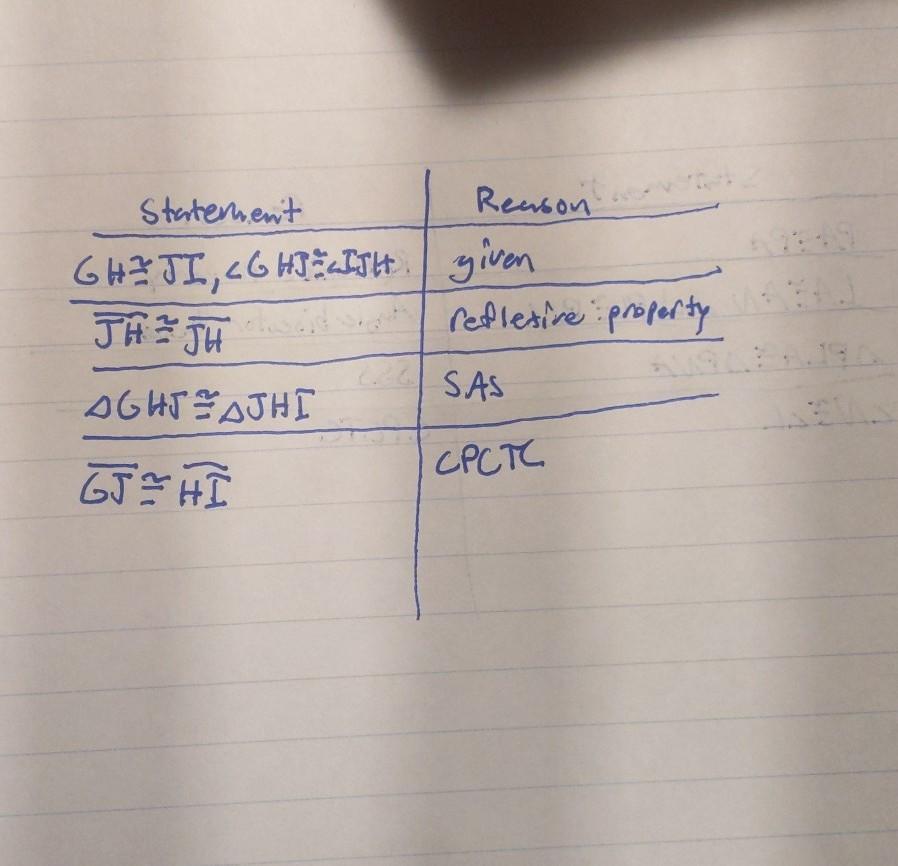 Statement Reason
GH≅JI, ∠GHJ≅∠IJH given
JH≅JH reflexive property
△GHJ≅△JHI SAS
GJ≅HI CPCTC